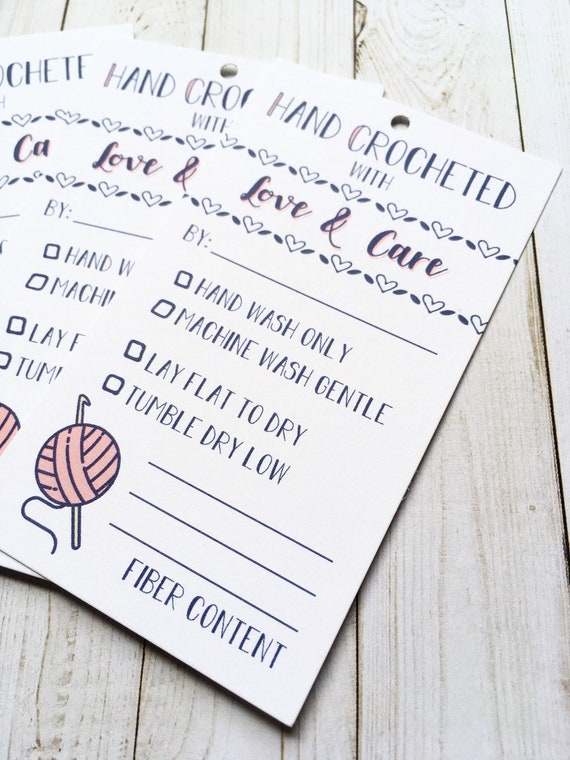 HAND CROCHETED
WITH
Love & Care
BY:
HAND WASH ONLY
MACHINE WASH GENTLE
LAY FLAT TO DRY
TUMBLE DRY LOW
FIBER CONTENT
HAND CRO
WITH
Love &
BY:
HAND W
MACHIN
LAY F
TUM
CROCHET
WITH
Ca